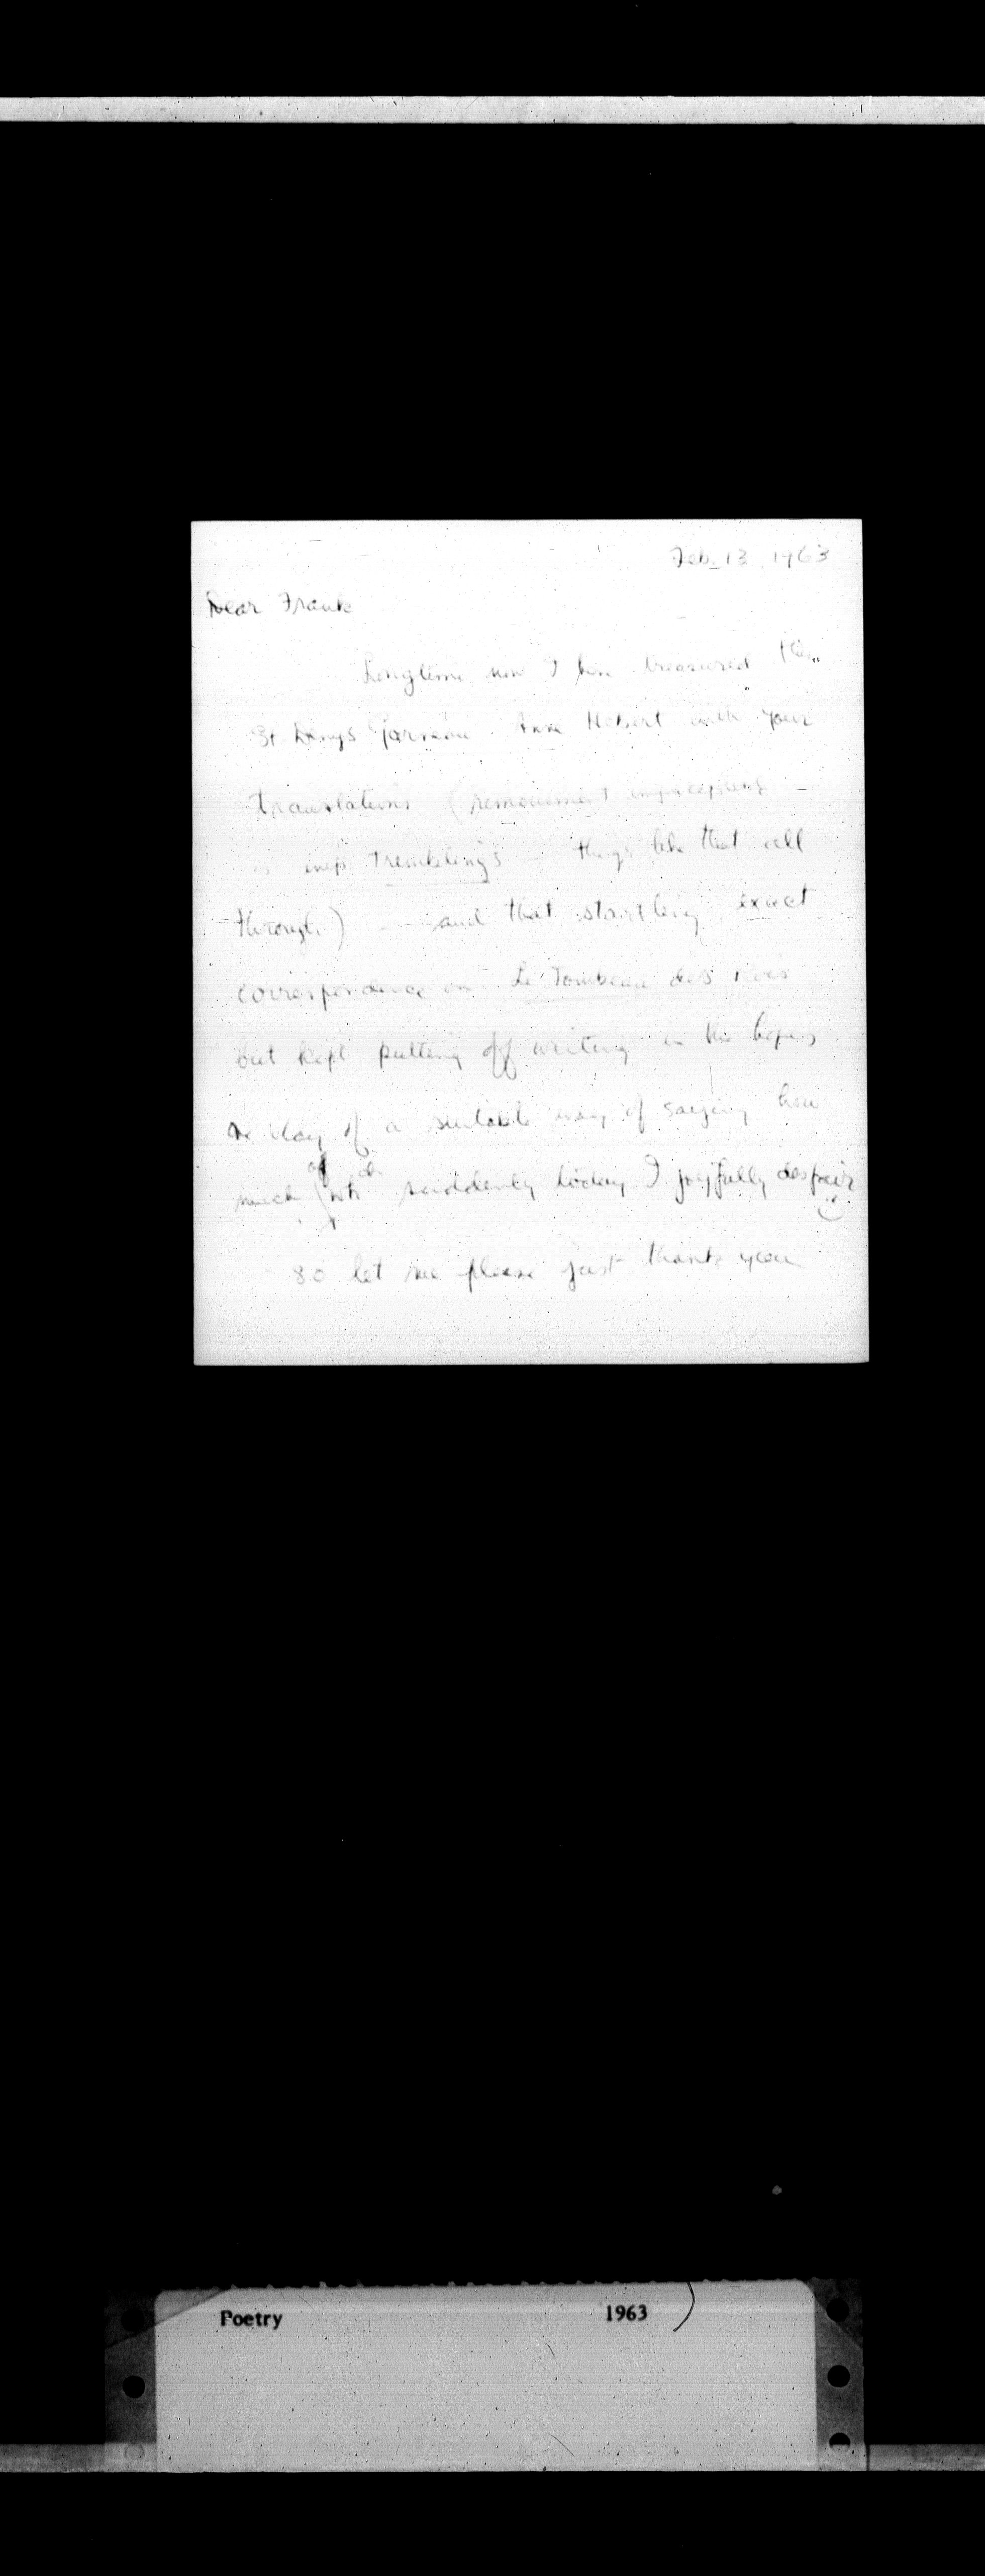 Feb. 13, 1963
Dear Frank
Longtime now I have treasured the
St Denys Garneau Anne Hebert with your
translations (
is trembling's — things like that all
through) — and that startling exact
correspondence on Le Tombeau des rois
but kept putting off writing in the hopes
one day of a suitable way of saying how
much of wh suddenly today I joyfully despair
So let me please just thank you
Poetry 1963